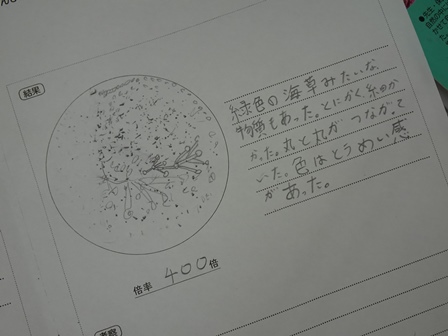 結果
緑色の海草みたいな
物質もあった。とにかく細か
かった。丸と丸が つながって
いた。色はとうめい感
があった。
倍率 400倍
考察